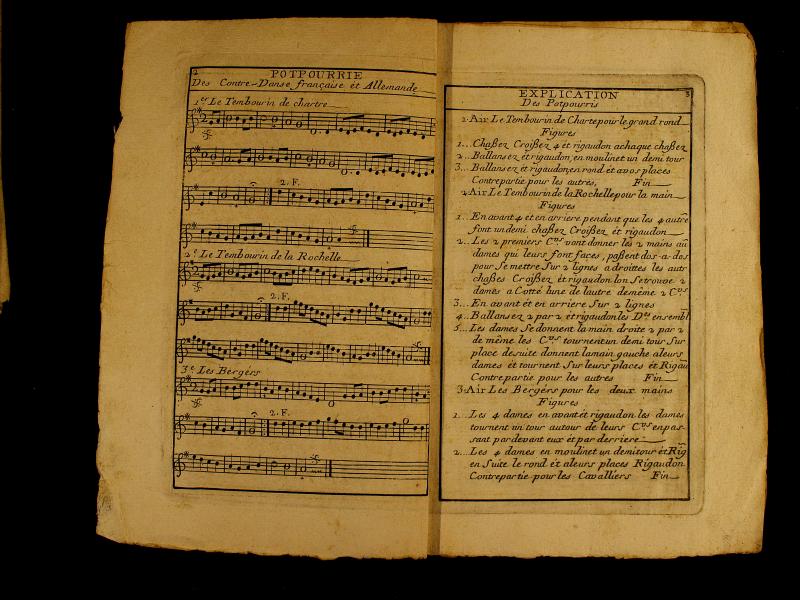 2
POTPOURRIE
Des Contre-Danse française et Allemande
1.er Le Tembourin de chartre
2. F.
2.e Le Tembourin de la Rochelle
2. F.
3.e Les Bergers
2. F.
3
EXPLICATION
Des Potpourris
1.Air Le Tembourin de Charte pour le grand rond
Figures
1... Chaßez Croißez 4 et rigaudon a chaque chaßez
2... Ballansez et rigaudon, en moulinet un demi tour
3... Ballansez et rigaudon, en rond et a vos places
Contrepartie pour les autres, Fin
2.Air Le Tembourin de la Rochelle pour la main
Figures
1... En avant 4 et en arriere pendant que les 4 autre
font un demi chaßez Croißez et rigaudon
2... Les 2 premiers C.ers vont donner les 2 mains au
dames qui leurs font faces, paßent dos-a-dos
pour se mettre Sur 2 lignes a droittes les autr
chaßes Croißez et rigaudon lon Se trouve 2
dames a Cotté lune de lautre de même 2 C.ers
3... En avant et en arriere Sur 2 lignes
4... Ballansez 2 par 2 et rigaudon les D.es ensembl
5... Les dames Se donnent la main droite 2 par 2
de même les C.ers tournent un demi tour Sur
place de suite donnent la main gauche a leurs
dames et tournent Sur leurs places et Rigau
Contrepartie pour les autres Fin
3.Air Les Bergers pour les deux mains
Figures
1... Les 4 dames en avant et rigaudon les dames
tournent un tour autour de leurs C.ers en pas-
sant par devant eux et par derriere
2... Les 4 dames en moulinet un demi tour et Rig
en Suite le rond et a leurs places Rigaudon
Contrepartie pour les Cavalliers Fin